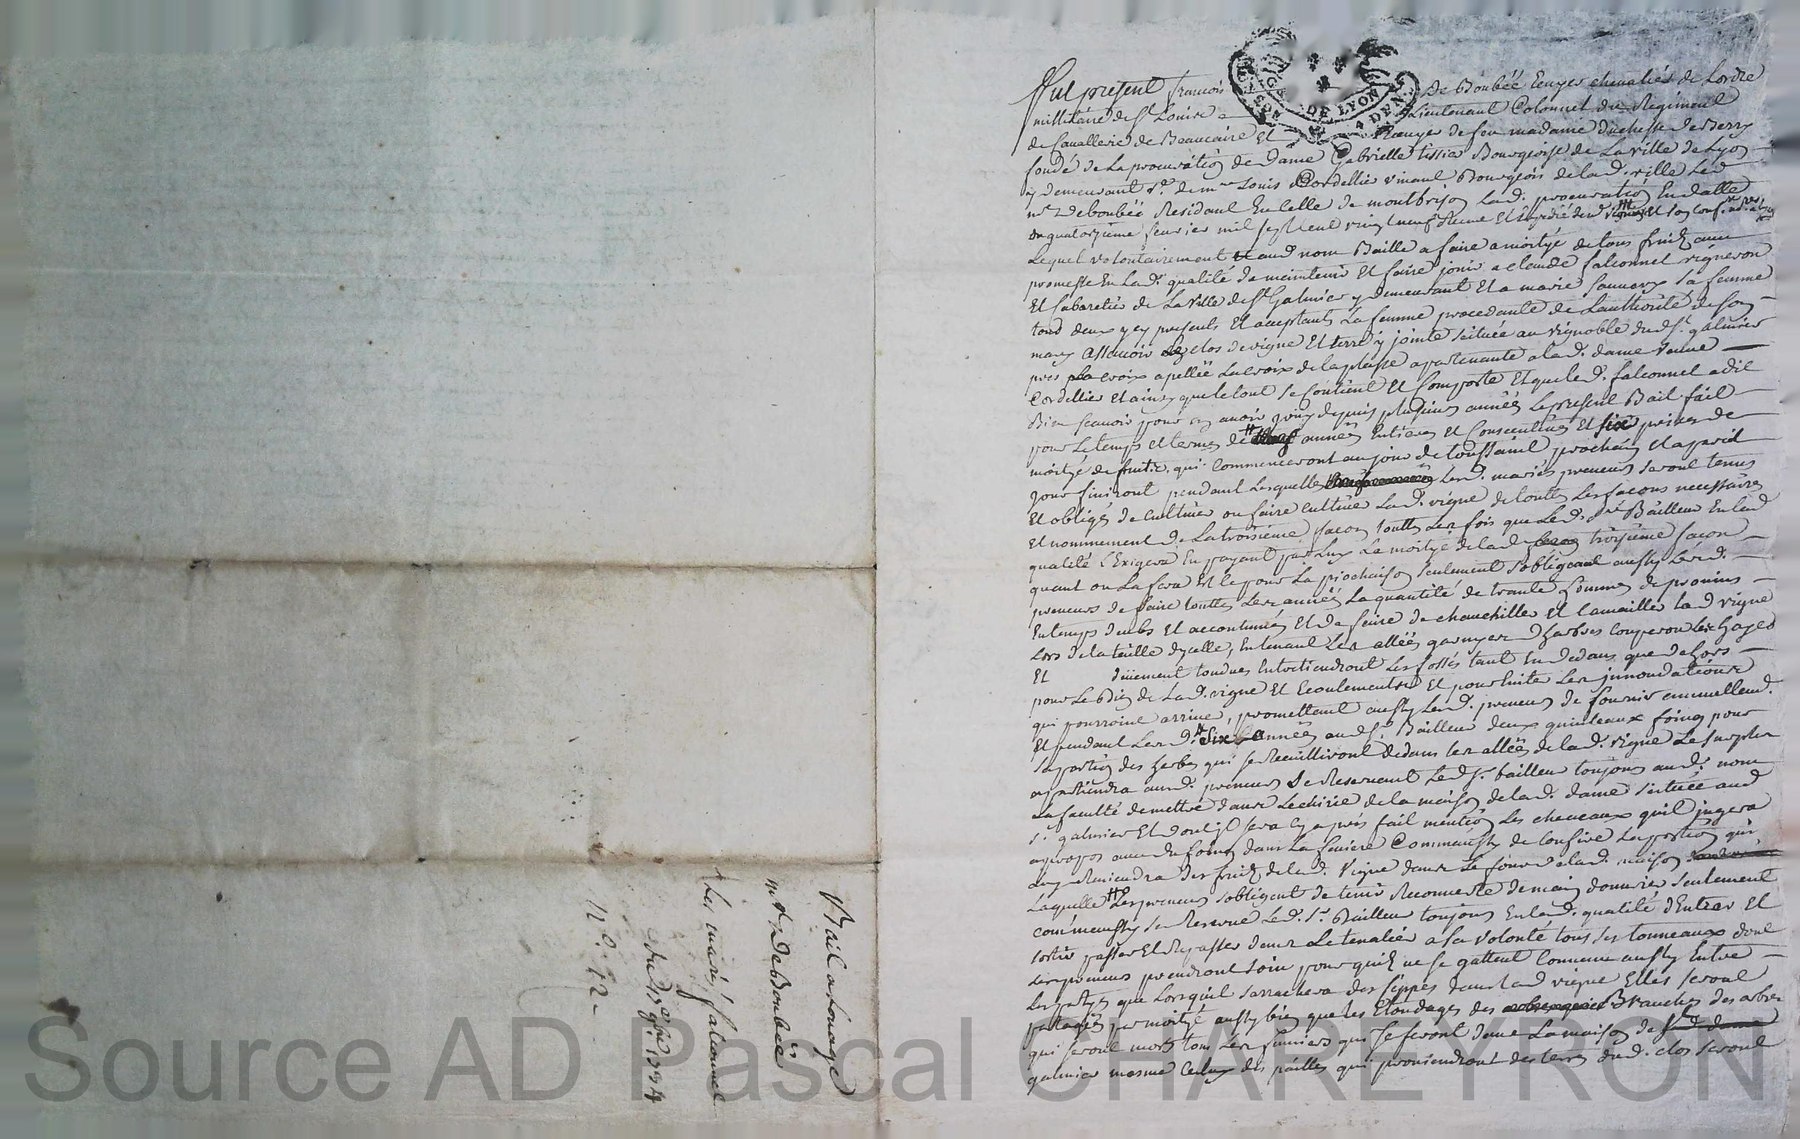 Fut present François De Boubée Ecuyer chevalier de Lordre
millitaire de St Louis Lieutenant Colonnel du Regiment
de Cavallerie de Beaucaire Et Ecuyer de feu madame duchesse de Berry
fondé de la procuration de Dame Gabrielle tissier Bourgeoise de La ville de Lyon
y demeurant Louis Cordellier vivant Bourgeois de lad. ville Led
mr Deboubée Residant En celle de montbrison Lad. procuration En datte
du quatorzieme feurier mil sept cent vingt neuf
Lequel volontairement aud nom Baille a faire a moityé de tous fruits avec
promesse En Lad. qualité de maintenir Et faire jouir a claude falconnet vigneron
Et Cabaretier de La ville de St Galmier y demeurant Et a marie sa femme
tous deux yey presents Et aceptants La femme procedante de Lauthorité de son
mary Assauoir clos de vigne Et terre y jointe scituée au vignoble dud St galmier
pres La croix apellée La croix de la apartenante a lad. dame veuve
Cordellier Et ainsy que le tout se Contient Et Comporte Et que led. falconnet a dit
Bien scauoir pour en auoir jouy depuis plusieurs années Le present Bail fait
pour Le temps Et terme de années Entieres Et Consecutiues Et six prises de
moityé de fruits qui Commenceront au jour de toussaint prochain Et a pareil
jour finiront pendant Lesquelles Lesd. mariés preneurs seront tenus
Et obligés de cultiuer ou faire cultiuer Lad. vigne de toutes Les facons necessaires
Et nommement de La troisieme facon toutte Les fois que Led. Sr Bailleur En lad
qualité L'Exigera En payant par Luy La moityé de lad troisieme facon
quant on La fera Et le pour La piochaison seulement s'obligeant aussy Lesd.
preneurs de faire touttes Les années La quantité de trante de prouins
En temps deubs Et accoutumés Et de faire dechauchiller Et Lad vigne
Lors de la taille dycelle, En tenant Les allées garnyes d'herbes couperont Les hayes
Et duement tondues Entretiendront Les fossés tant En dedans que dehors
pour Le Bien de Lad. vigne Et Ecoulements Et pour Euiter Les jnnondations
qui pourroint arriuer, promettant aussy Lesd. preneurs de fournir annuellemt
Et pendant Lesd. Six années aud Sr. Bailleur deux quintaux foing pour
sa portion des herbes qui se Recuilliront dedans les allées de lad. vigne Le surplus
apartiendra aud. preneurs Se Reseruant Led Sr. bailleur toujours aud. nom
La faculté de mettre dans de la maison de lad. dame scituée aud
St. galmier Et dont jl sera Cy apres fait mention Les cheuaux quil jugera
a propos auec du foing dans La feniere Comme aussy de La portion qui
Luy Reuiendra des fruits de lad. Vigne dans Le de lad. maison
Laquelle Les preneurs s'obligent de tenir Recouuerte de main douurier seulement
comme aussy se Reserue Led. Sr. Bailleur toujours En lad. qualité d'Entrer Et
sortir passer Et Repasser dans Le tenalier a sa volonté tous ses tonneaux dont
Les preneurs prendront soin pour quils ne se gattent Comme aussy Entre
Les partyes que Lorsquil sarrachera des seppes dans Lad vigne Elles seront
partagées par moityé aussy bien que les Elondages des Branches des arbres
qui seront morts tous Les fumiers qui se feront dans La maison de St
galmier mesme Ceux des pailles qui prouiendront des terres dud. clos seront
Bail a Louage
mr De Boubée
Les mariés falconnet
N°. 12